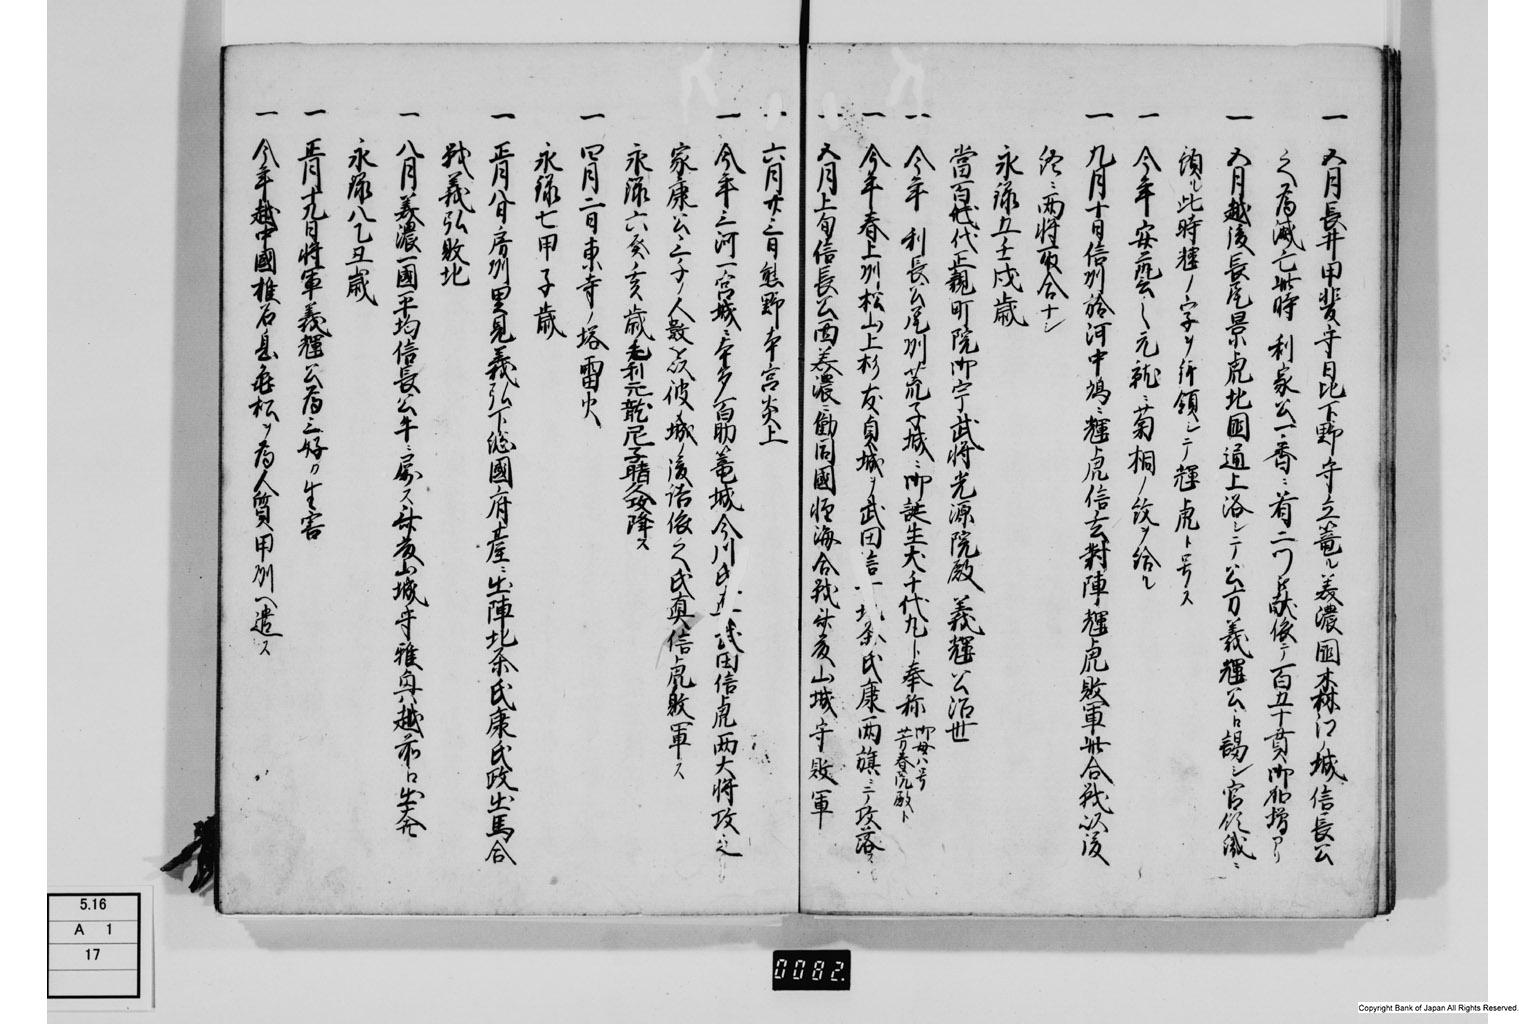 一 五月長井甲斐守日比下野守立篭ル美濃國森口ノ城信長公
之ヲ為滅亡此時 利家公一番ニ首二ツヲ献依テ百五十貫御加増アリ
一 五月越後長尾景虎北國通上洛シテ公方義輝公ニ謁シ官領職ニ
預ル此時輝ノ字ヲ拝領シテ輝虎ト号ス
一 今年安藝ノ元就ニ菊桐ノ紋ヲ給ル
一 九月十日信州於河中嶋ニ輝虎信玄對陣輝虎敗軍此合戦以後
終ニ両将取合ナシ
永禄五壬戌歳
當百代代正親町院御宇武将光源院殿 義輝公治世
一 今年 利長公尾州荒子城ニ御誕生犬千代丸ト奉称 御母ハ号芳春院殿ト
一 今年春上州松山上杉友貞城ヲ武田信一北条氏康両旗ニテ攻落ス
一 五月上旬信長公西美濃ニ働同國軽海合戦 山城守敗軍
一 六月廿三日熊野本宮炎上
一 今年三河一宮城ニ本多百助篭城今川氏真武田信虎両大将攻之
家康公三千ノ人数ヲ以彼城ノ後詰依之氏真信虎敗軍ス
永禄六癸亥歳 毛利元就尼子晴久攻降ス
一 四月二日東寺ノ塔雷火
永禄七甲子歳
一 正月八日房州里見義弘下総國府臺ニ出陣北条氏康氏政出馬合
戦義弘敗北
一 八月美濃一國平均信長公手ニ属ス 山城守雅興ハ越前ニ出奔
永禄八乙丑歳
一 五月十九日将軍義輝公為三好カ生害
一 今年越中國椎名息 松ヲ為人質甲州ヘ遣ス
5.16
A 1
17
0082.
Copyright Bank of Japan All Rights Reserved.